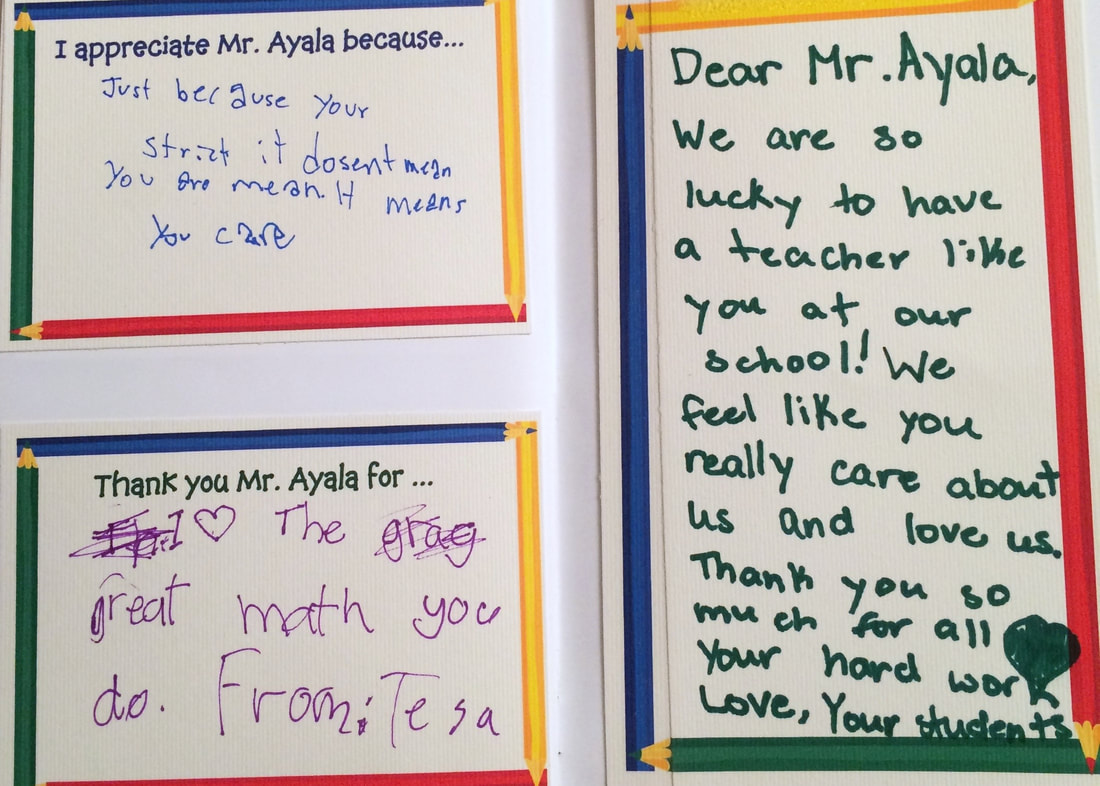 I appreciate Mr. Ayala because...
Just because your
strict it dosent mean
you are mean. It means
you care
Thank you Mr. Ayala for ...
I ♡ The grag
great math you
do. From: Tesa
Dear Mr. Ayala,
We are so
lucky to have
a teacher like
you at our
school! We
feel like you
really care about
us and love us.
Thank you so
much for all
your hard work
Love, Your students